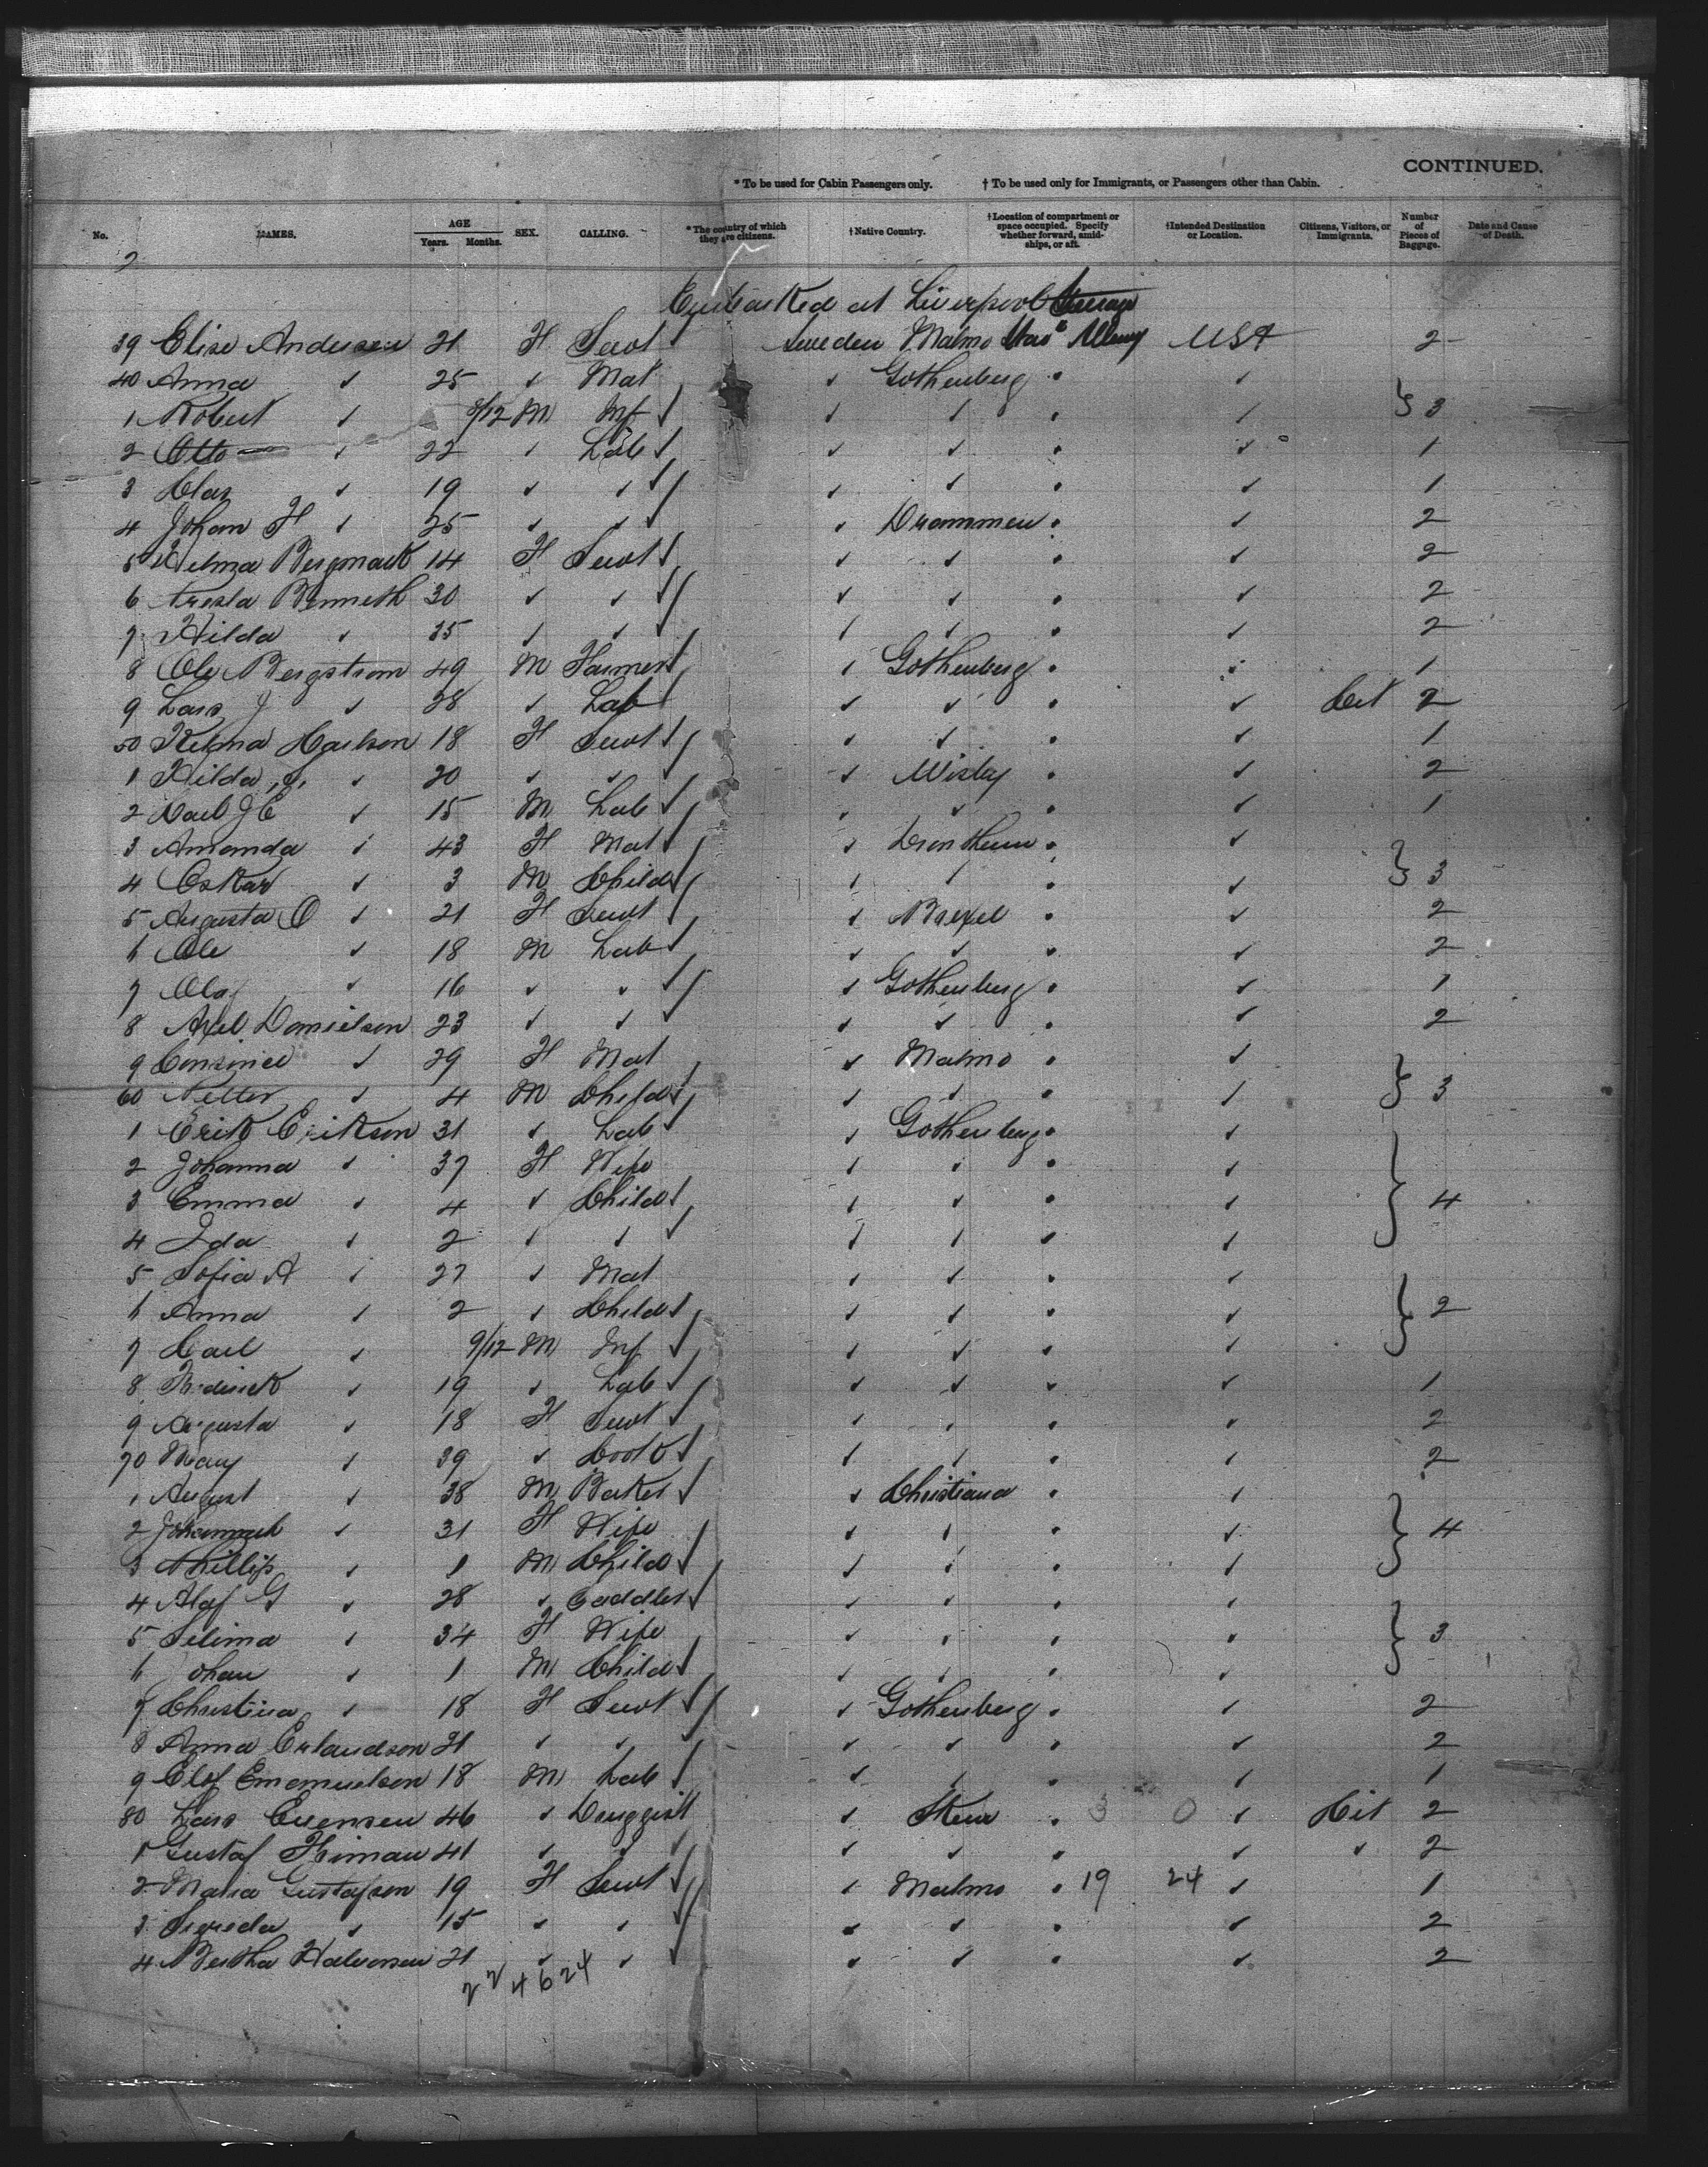 CONTINUED.
* To be used for Cabin Passengers only. † To be used only for Immigrants, or Passengers other than Cabin.
No. NAMES. AGE Years. Months. SEX. CALLING. * The country of which they are citizens. † Native Country. † Location of compartment or space occupied. Specify whether forward, amidships, or aft. † Intended Destination or Location. Citizens, Visitors, or Immigrants. Number of Pieces of Baggage. Date and Cause of Death.
2
Embarked at Liverpool Steerage
39 Elise Andersen 21 F Servt Sweden Malmo USA 2
40 Anna ✓ 25 ✓ Mat ✓ Gothenberg ✓
1 Robert ✓ 8/12 M Inf ✓ ✓ ✓ } 3
2 Otto ✓ 22 ✓ Lab ✓ ✓ ✓ 1
3 Clas ✓ 19 ✓ ✓ ✓ ✓ ✓ 1
4 Johan F ✓ 25 ✓ ✓ ✓ Drammen ✓ 2
5 14 F Servt ✓ ✓ ✓ 2
6 30 ✓ ✓ ✓ ✓ ✓ 2
7 Hilda ✓ 25 ✓ ✓ ✓ ✓ ✓ 2
8 Ole Bergstrom 49 M Farmer ✓ Gothenberg 1
9 Lars J ✓ 28 ✓ Lab ✓ ✓ ✓ Cit 2
50 18 F Servt ✓ ✓ ✓ 1
1 Hilda ✓ 20 ✓ ✓ ✓ Wisby ✓ 2
2 Carl J E ✓ 15 M Lab ✓ ✓ ✓ 1
3 Amanda ✓ 43 F Mat ✓ Drontheim ✓
4 Oskar ✓ 3 M Child ✓ ✓ ✓ } 3
5 Augusta O ✓ 21 F Servt ✓ ✓ 2
6 Ole ✓ 18 M Lab ✓ ✓ ✓ 2
7 Olaf ✓ 16 ✓ ✓ ✓ Gothenberg ✓ 1
8 Axel Danielson 23 ✓ ✓ ✓ ✓ ✓ 2
9 ✓ 29 F Mat ✓ Malmo ✓
60 ✓ 4 M Child ✓ ✓ ✓ } 3
1 Erik Erikson 31 ✓ Lab ✓ Gothenberg ✓
2 Johanna ✓ 37 F Wife ✓ ✓ ✓
3 Emma ✓ 4 ✓ Child ✓ ✓ ✓ } 4
4 Ida ✓ 2 ✓ ✓ ✓ ✓ ✓
5 Sofia A ✓ 27 ✓ Mat ✓ ✓ ✓
6 Anna ✓ 2 ✓ Child ✓ ✓ ✓ } 2
7 Carl ✓ 9/12 M Inf ✓ ✓ ✓
8 Frederick ✓ 19 ✓ Lab ✓ ✓ ✓ 1
9 Augusta ✓ 18 F Servt ✓ ✓ ✓ 2
70 Mary ✓ 39 ✓ Cook ✓ ✓ ✓ 2
1 August ✓ 38 M Baker ✓ Christiana ✓
2 Johannah ✓ 31 F Wife ✓ ✓ ✓ } 4
3 Phillip ✓ 1 M Child ✓ ✓ ✓
4 Alaf G ✓ 28 ✓ Saddler ✓ ✓ ✓
5 Selima ✓ 34 F Wife ✓ ✓ ✓ } 3
6 Johan ✓ 1 M Child ✓ ✓ ✓
7 Christina ✓ 18 F Servt ✓ Gothenberg ✓ 2
8 Anna Erlandson 21 ✓ ✓ ✓ ✓ ✓ 2
9 Elof Emanuelson 18 M Lab ✓ ✓ ✓ 1
80 Lars Evensen 46 ✓ Druggist ✓ 3 0 ✓ Cit 2
1 Gustaf 41 ✓ ✓ ✓ ✓ ✓ ✓ 2
2 Maria Gustafson 19 F Servt ✓ Malmo 19 24 ✓ 1
3 ✓ 15 ✓ ✓ ✓ ✓ ✓ 2
4 Bertha Halvorsen 21 ✓ ✓ ✓ ✓ ✓ 2
22 46 24